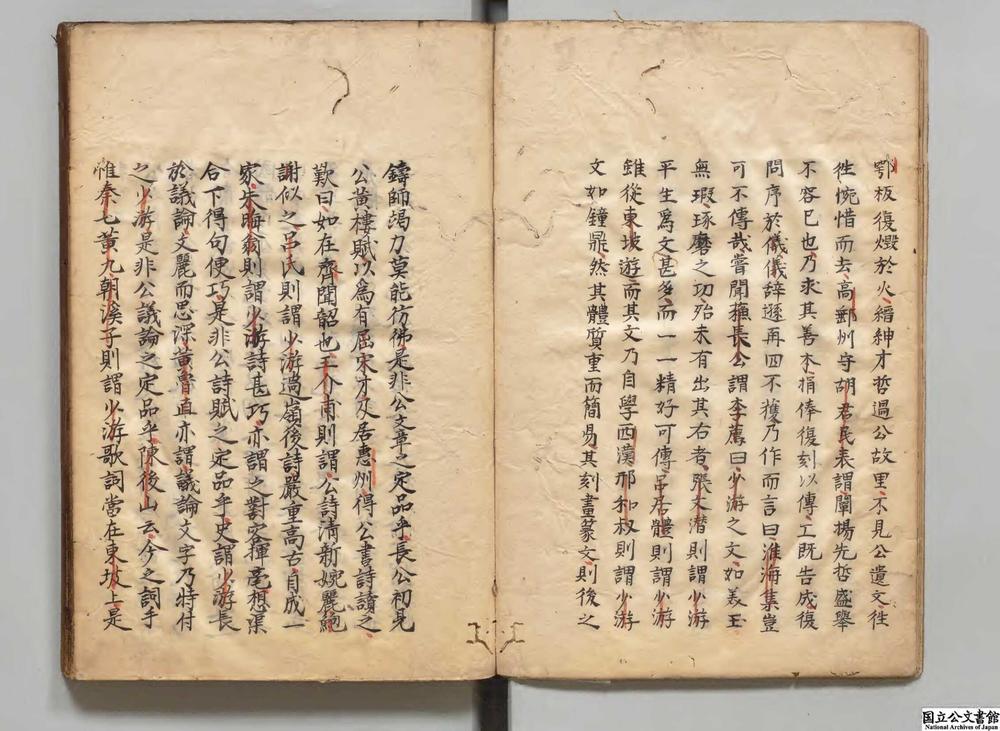 鄂板復燬於火縉紳才哲過公故里不見公遺文徃
徃惋惜而去高郵州守胡君民表謂闡揚先哲盛舉
不容已也乃求其善本捐俸復刻以傳工既告成復
問序於儀儀辭遜再四不獲乃作而言曰淮海集豈
可不傳哉嘗聞蘓長公謂李廌曰少游之文如美玉
無瑕琢磨之功殆未有出其右者張文潜則謂少游
平生爲文甚多而一一精好可傳吕居體則謂少游
雖從東坡遊而其文乃自學西漢邢和叔則謂少游
文如鐘鼎然其體質重而簡易其刻畫篆文則後之
鑄師竭力莫能彷彿是非公文章之定品乎長公初見
公黄樓賦以爲有屈宋才及居惠州得公書詩讀之
歎曰如在齊聞韶也王介甫則謂公詩清新婉麗鮑
謝似之吕氏則謂少游過嶺後詩嚴重高古自成一
家朱晦翁則謂少游詩甚巧亦謂之對客揮毫想渠
合下得句便巧是非公詩賦之定品乎史謂少游長
於議論文麗而思深黄魯直亦謂議論文字乃特付
之少游是非公議論之定品乎陳後山云今之詞手
惟秦七黄九朝溪子則謂少游歌詞當在東坡上是
国立公文書館
National Archives of Japan